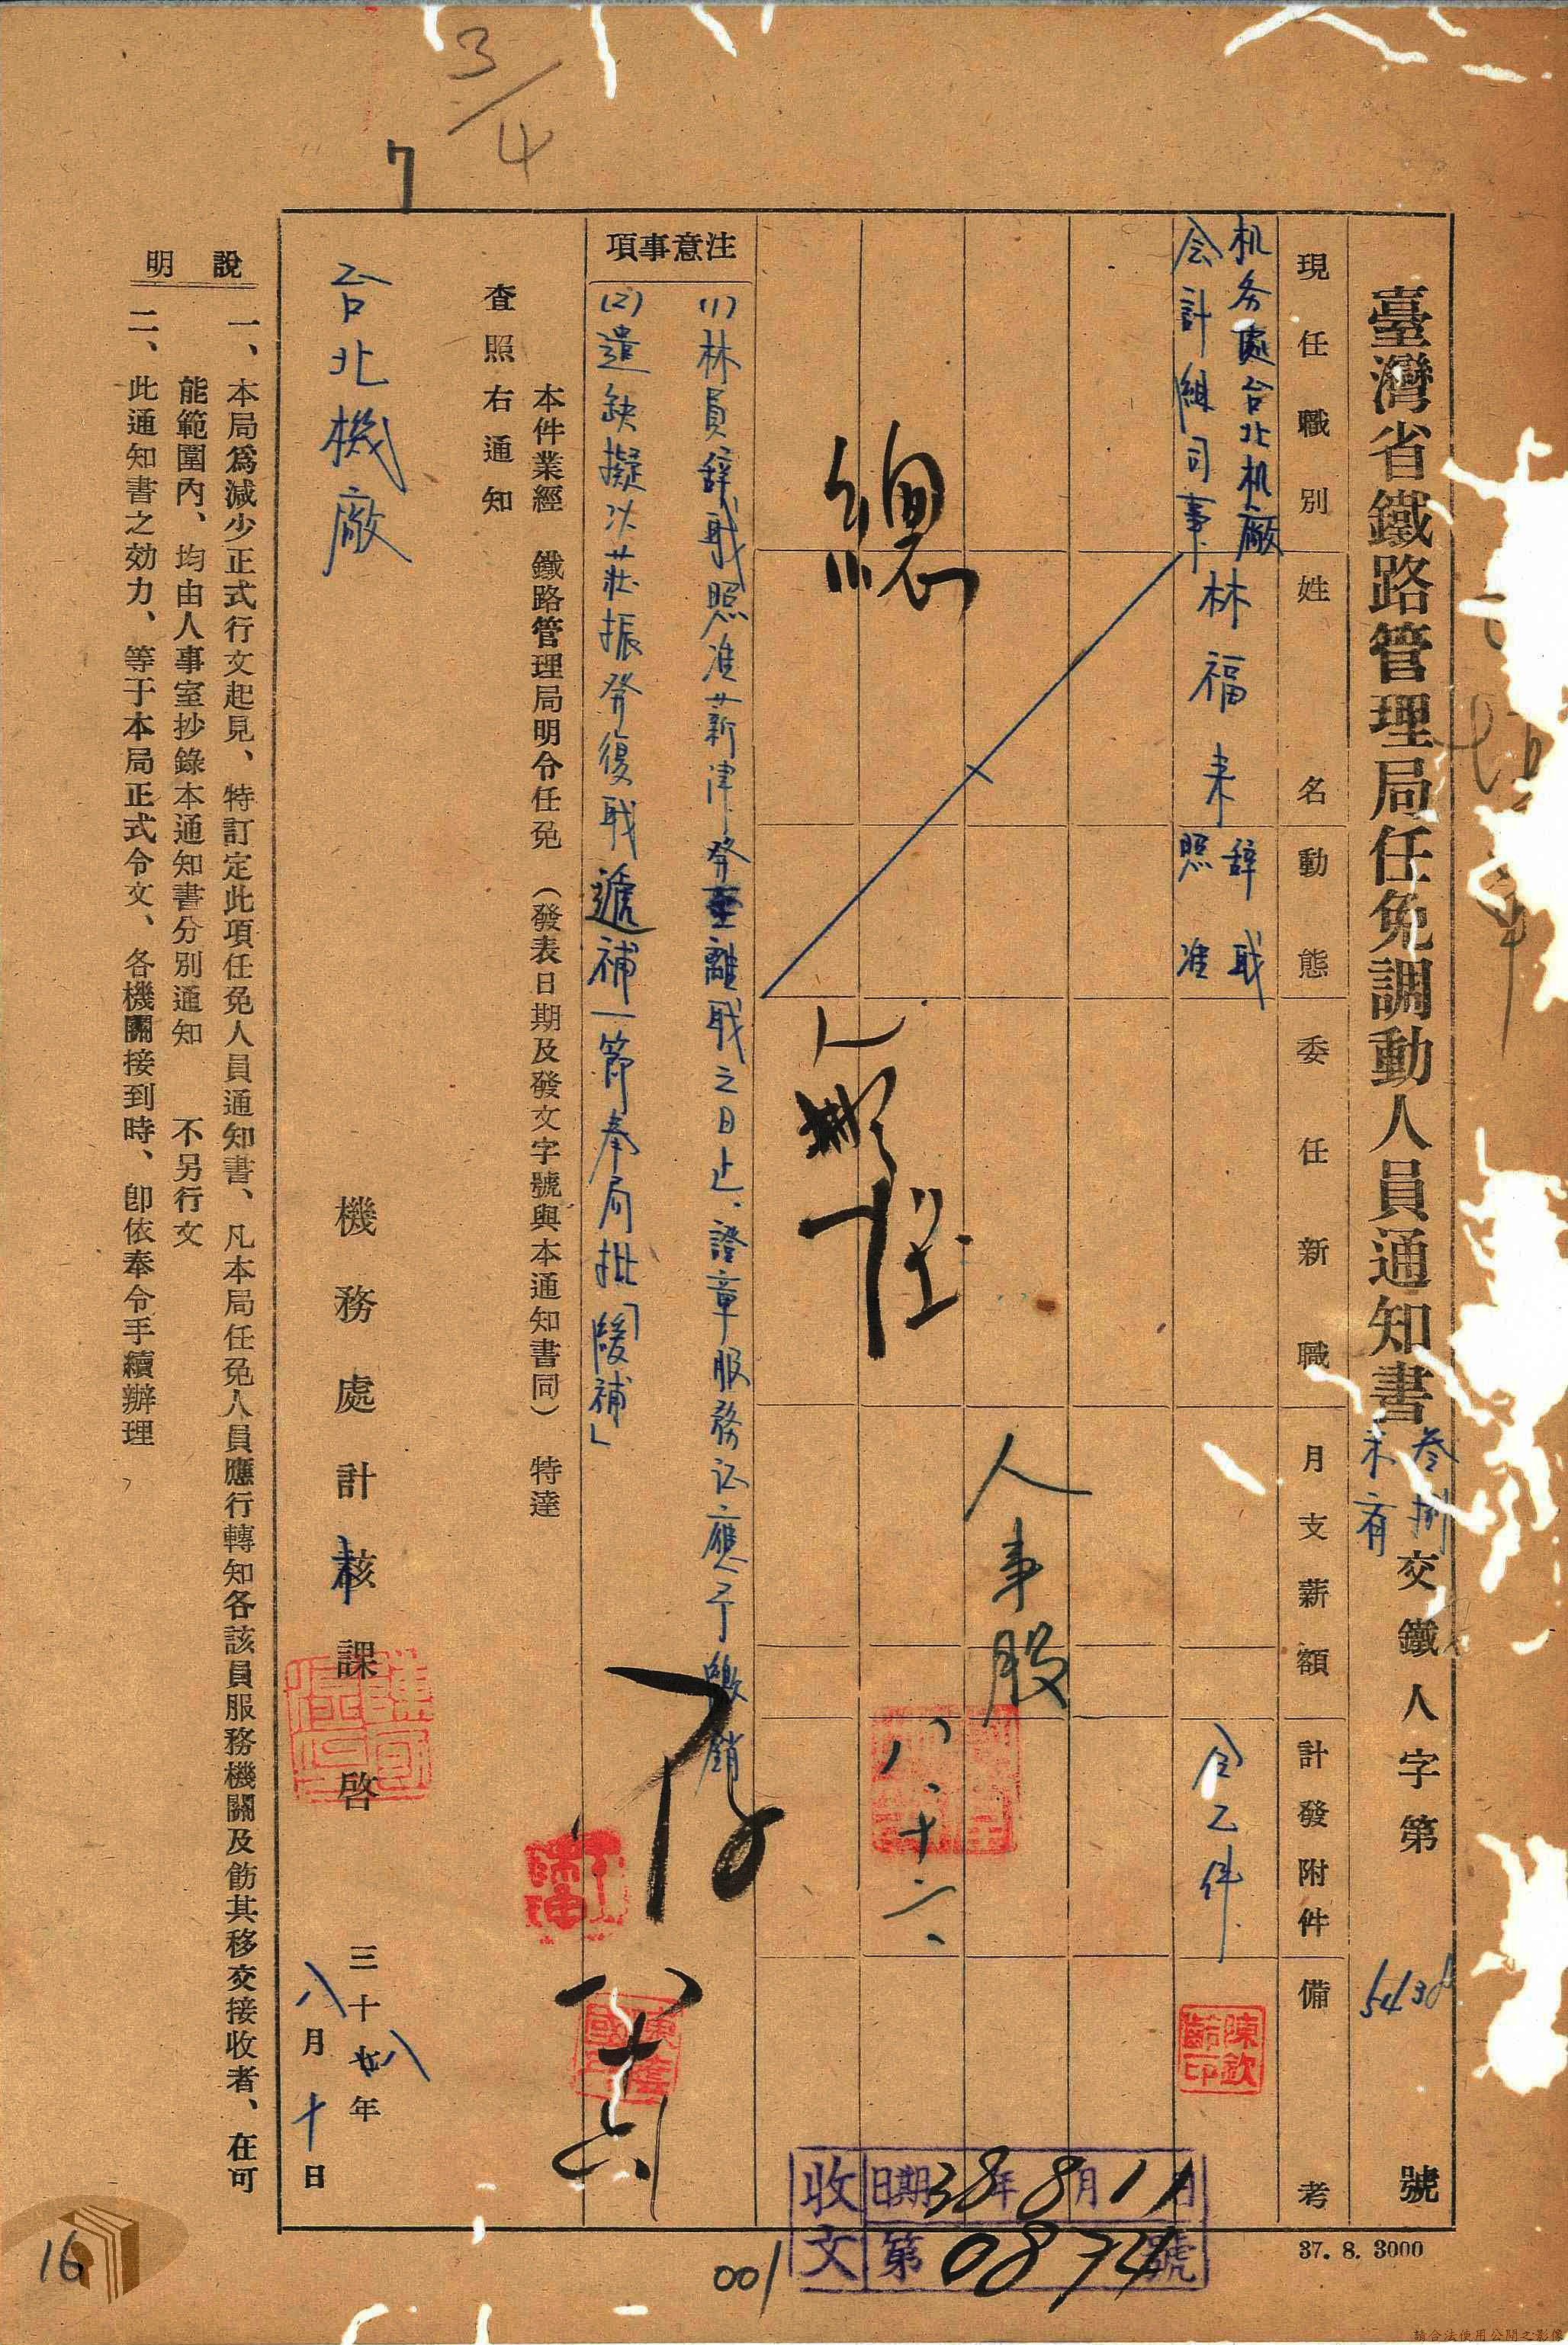 臺灣省鐵路管理局任免調動人員通知書
叁捌
未有
交鐵人字第 5438 號
現任職別
姓名
動態
委任新職
月支薪額
計發附件
備考
机务處台北机廠
会計組司事
林福来
辞职
照准
令乙件
陳欽齡印
人事股
八、十二、
總
注意事項
(1)林員辞职照准薪津發至離职之日止、證章服務证應予繳銷
(2)遺缺擬以莊振發復职遞補一節奉局批「緩補」
存
本件業經 鐵路管理局明令任免 (發表日期及發文字號與本通知書同) 特達
查照右通知
台北機廠
機務處計核課啓
三十八年
八月十日
說明
一、本局爲減少正式行文起見、特訂定此項任免人員通知書、凡本局任免人員應行轉知各該員服務機關及飭其移交接收者、在可
能範圍內、均由人事室抄錄本通知書分別通知 不另行文
二、此通知書之効力、等于本局正式令文、各機關接到時、卽依奉令手續辦理
收文
日期38年8月11日
第0874號
37. 8. 3000
001
16
3/4
7
請合法使用公開之影像